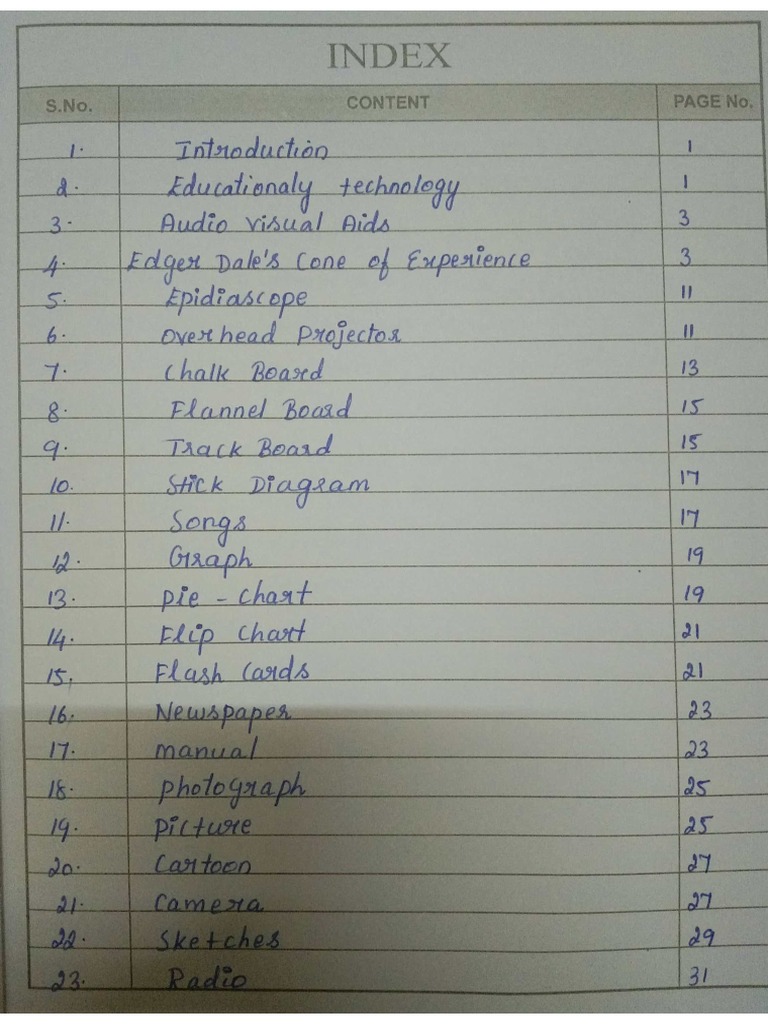 INDEX
S.No. CONTENT PAGE No.
1. Introduction 1
2. Educationaly technology 1
3. Audio visual Aids 3
4. Edger Dale's Cone of Experience 3
5. Epidiascope 11
6. Overhead Projector 11
7. Chalk Board 13
8. Flannel Board 15
9. Track Board 15
10. Stick Diagram 17
11. Songs 17
12. Graph 19
13. Pie - Chart 19
14. Flip Chart 21
15. Flash Cards 21
16. Newspaper 23
17. manual 23
18. photograph 25
19. picture 25
20. Cartoon 27
21. Camera 27
22. Sketches 29
23. Radio 31